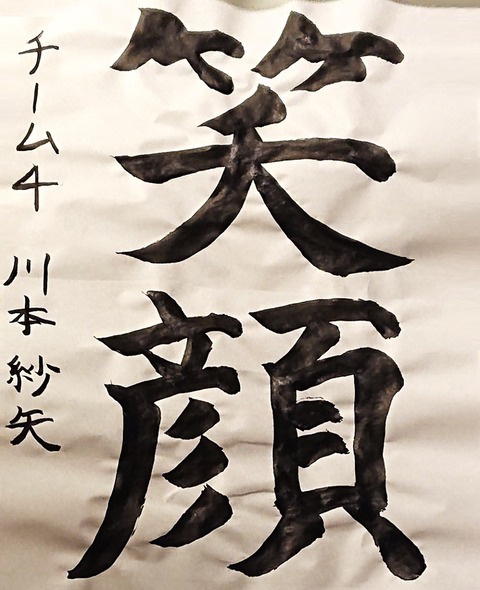 笑顔
チーム4 川本紗矢